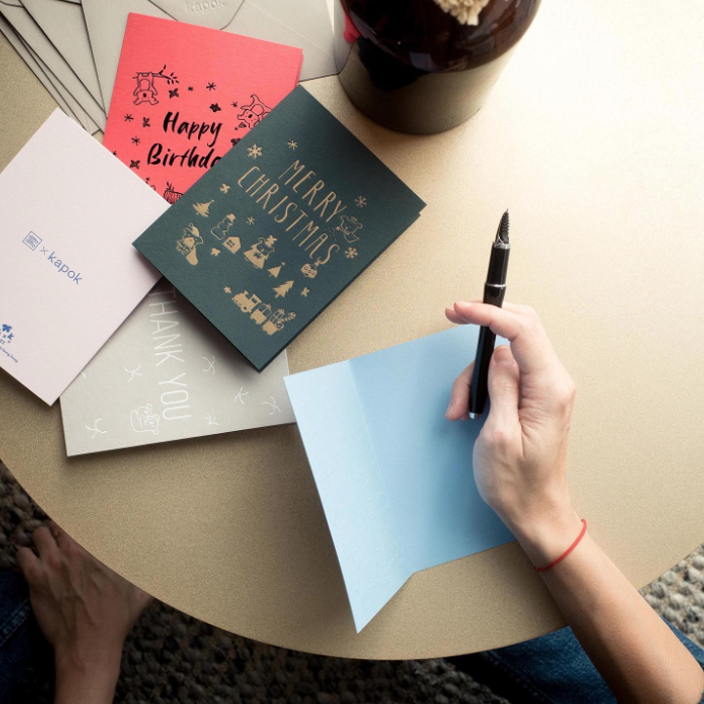 kapok
Happy
Birthda
MERRY
CHRISTMAS
x kapok
THANK YOU